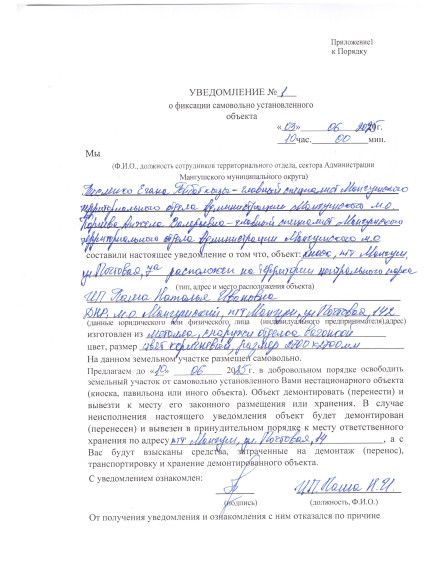 Приложение1
к Порядку
УВЕДОМЛЕНИЕ № 1
о фиксации самовольно установленного
объекта
« 03 » 06 2025г.
10 час. 00 мин.
Мы
(Ф.И.О., должность сотрудников территориального отдела, сектора Администрации
Мангушского муниципального округа)
главный специалист Мангушского
территориального отдела Администрации Мангушского м.о.
главный специалист Мангушского
территориального отдела Администрации Мангушского м.о
составили настоящее уведомление о том, что, объект: киоск, пгт Мангуш,
ул Почтовая, расположен на территории центрального парка
(тип, адрес и место расположения объекта)
ИП Наталья Ивановна
ДНР, м.о. Мангушский, пгт Мангуш, ул Почтовая,
(данные юридического или физического лица (индивидуального предпринимателя),адрес)
изготовлен из металла, снаружи отделка вагонкой
цвет, размер цвет коричневый, размер
На данном земельном участке размещен самовольно.
Предлагаем до «10» 06 2025г. в добровольном порядке освободить
земельный участок от самовольно установленного Вами нестационарного объекта
(киоска, павильона или иного объекта). Объект демонтировать (перенести) и
вывезти к месту его законного размещения или хранения. В случае
неисполнения настоящего уведомления объект будет демонтирован
(перенесен) и вывезен в принудительном порядке к месту ответственного
хранения по адресу пгт Мангуш, ул. Почтовая, , а с
Вас будут взысканы средства, затраченные на демонтаж (перенос),
транспортировку и хранение демонтированного объекта.
С уведомлением ознакомлен:
ИП. Н.И.
(подпись) (должность, Ф.И.О.)
От получения уведомления и ознакомления с ним отказался по причине